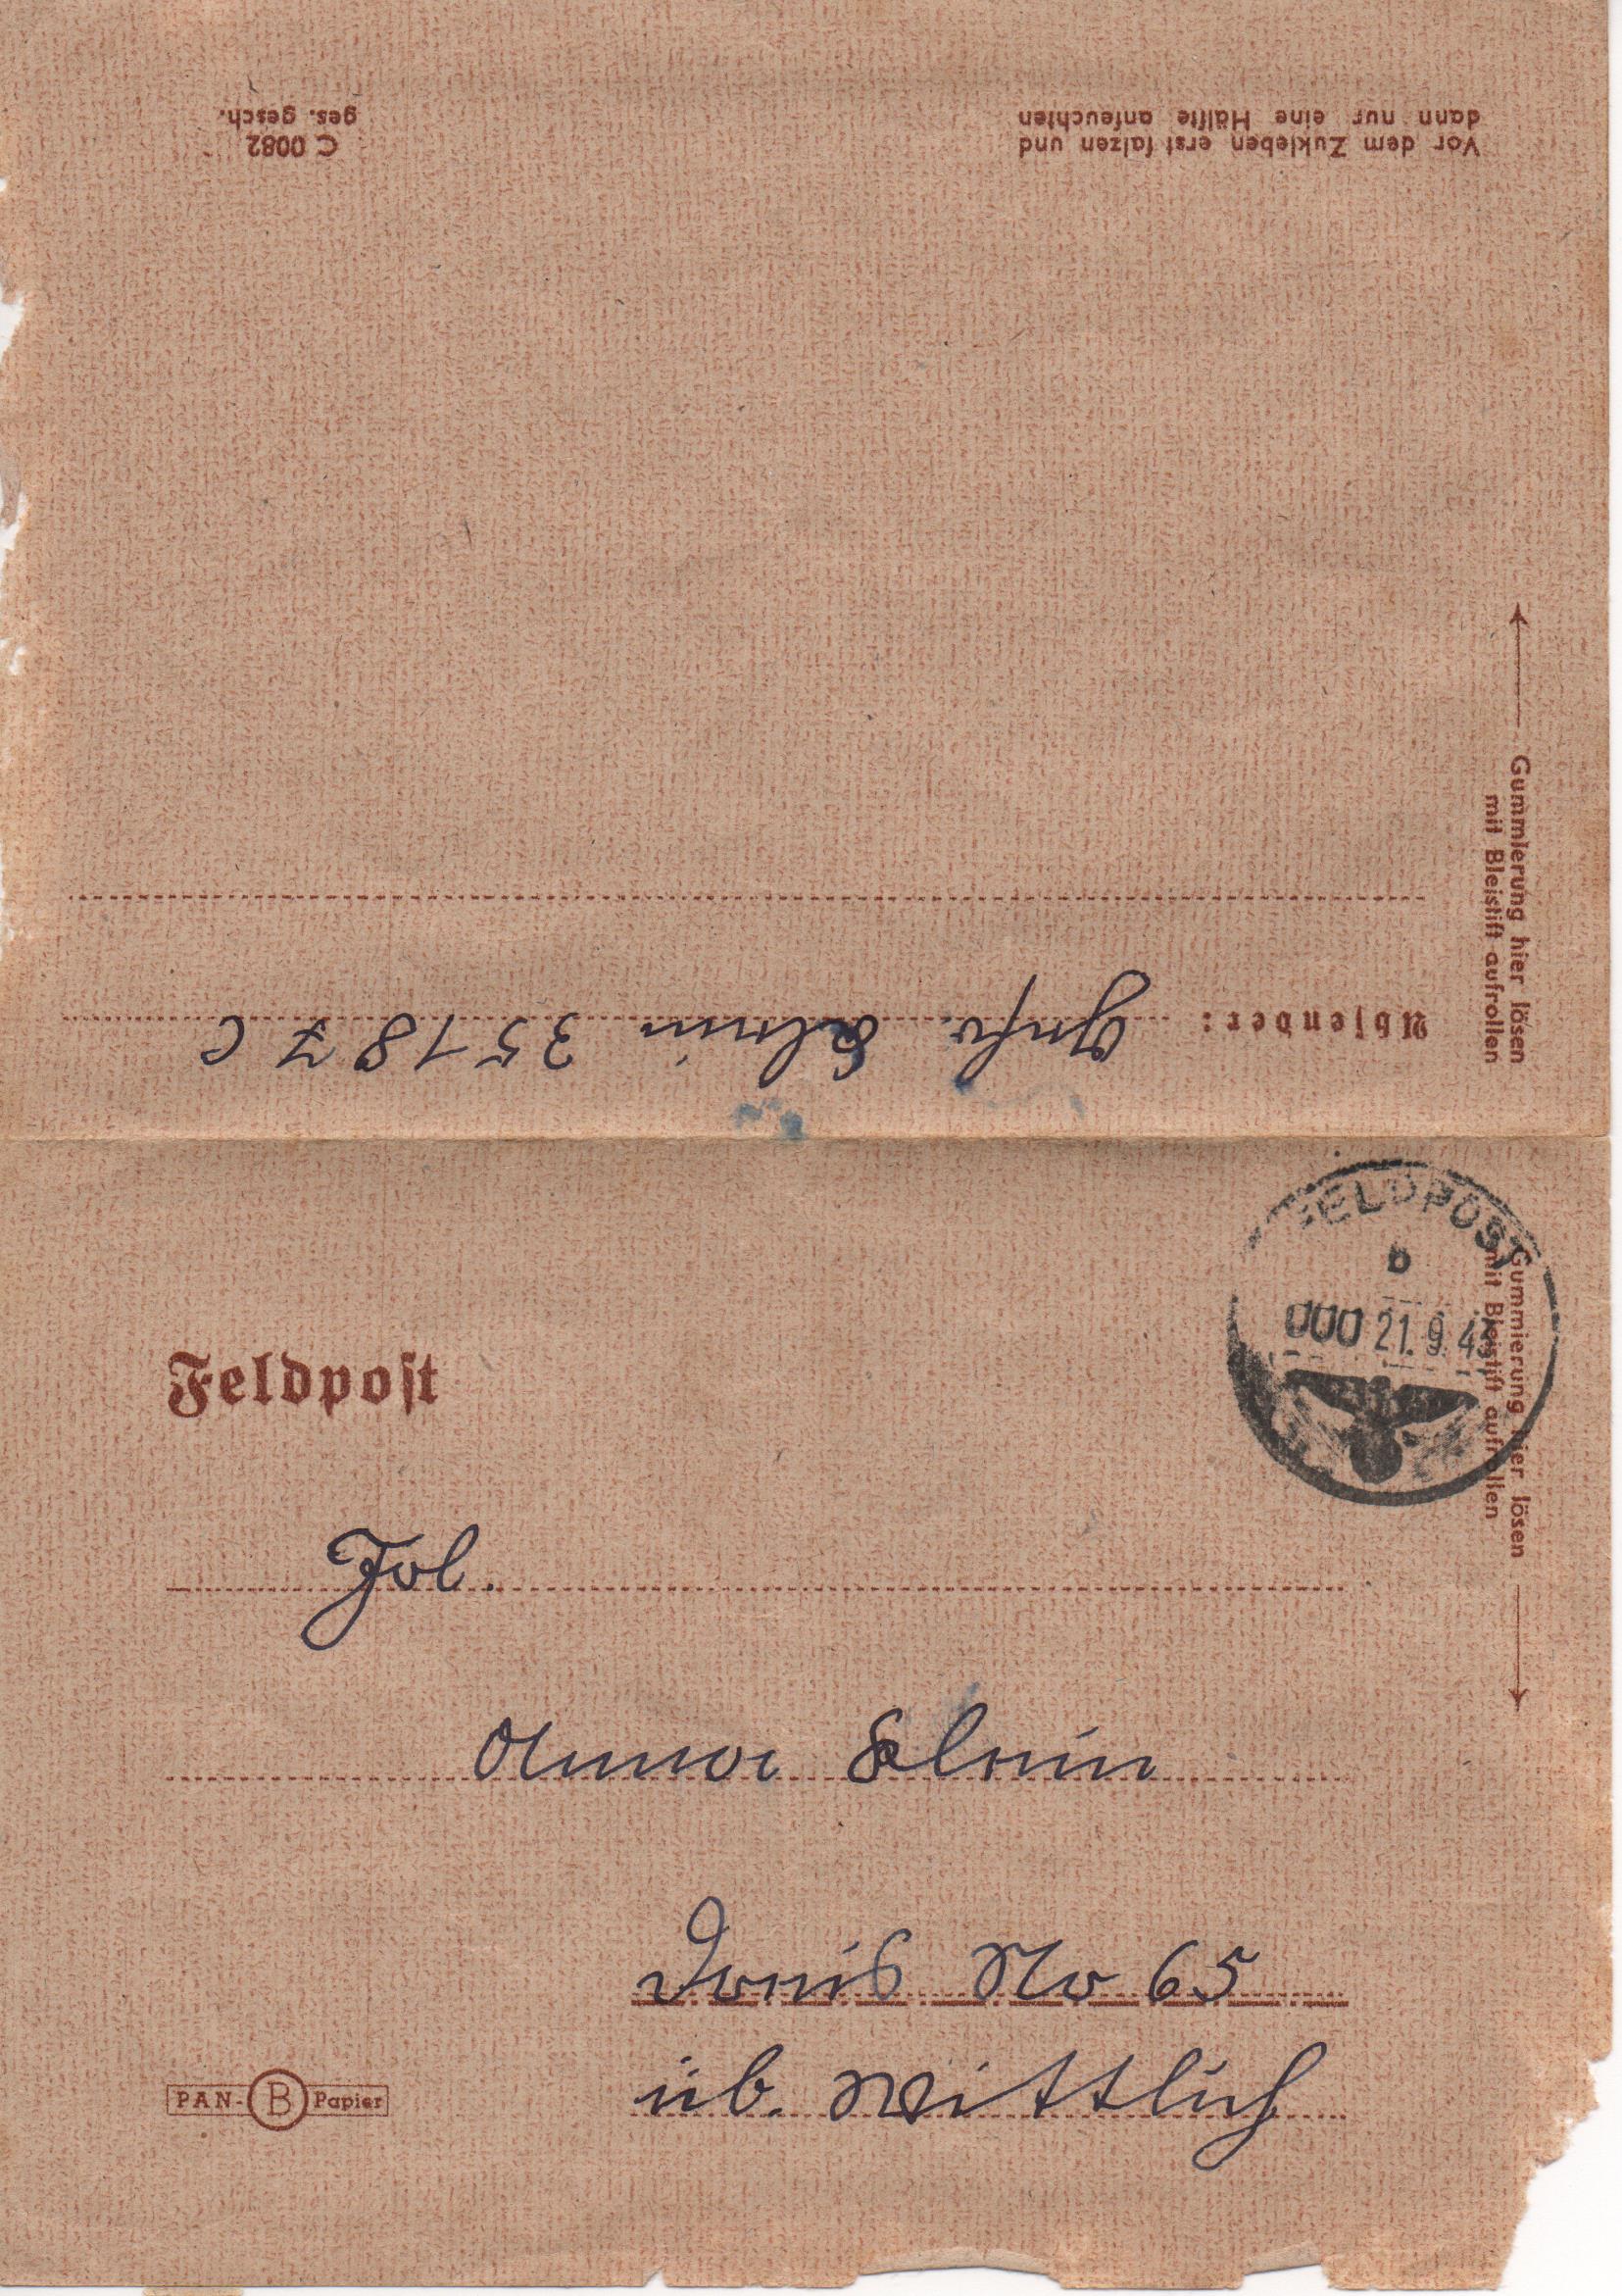 C 0082
ges. gesch.
Vor dem Zukleben erst falzen und
dann nur eine Hälfte anfeuchten
Gummierung hier lösen
mit Bleistift aufrollen
Absender: Gefr. Klein 35187 C
FELDPOST
b
000 21.9.43
Gummierung hier lösen
mit Bleistift aufrollen
Feldpost
Frl.
Anna Klein
Dreis Nr 65
üb. Wittlich
PAN-B Papier